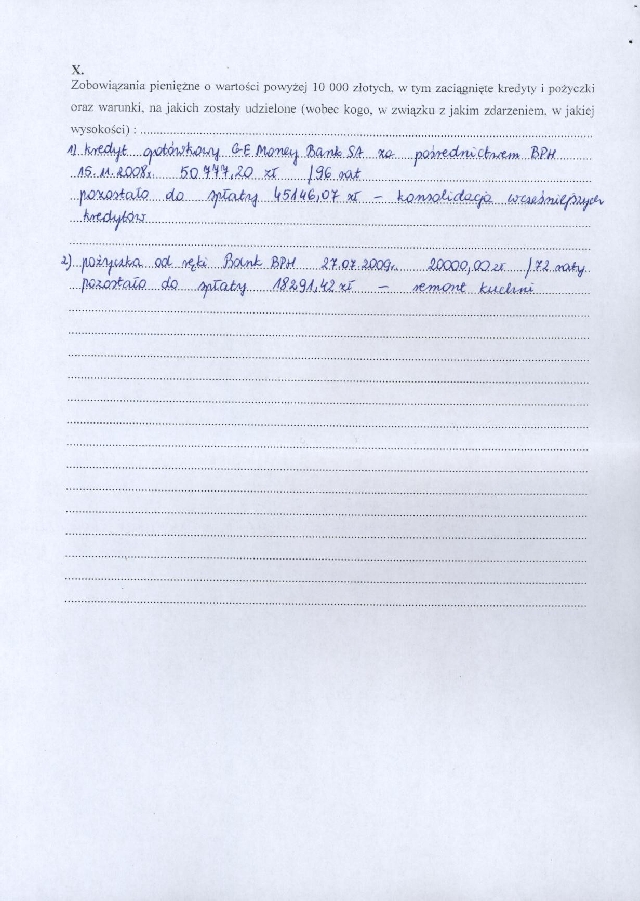 X.
Zobowiązania pieniężne o wartości powyżej 10 000 złotych, w tym zaciągnięte kredyty i pożyczki
oraz warunki, na jakich zostały udzielone (wobec kogo, w związku z jakim zdarzeniem, w jakiej
wysokości) :
1) kredyt gotówkowy GE Money Bank SA za pośrednictwem BPH
15.11.2008r. 50 777,20 zł /96 rat
pozostało do spłaty 45146,07 zł – konsolidacja wcześniejszych
kredytów
2) pożyczka od ręki Bank BPH 27.07.2009r. 20000,00 zł /72 raty
pozostało do spłaty 18291,42 zł – remont kuchni